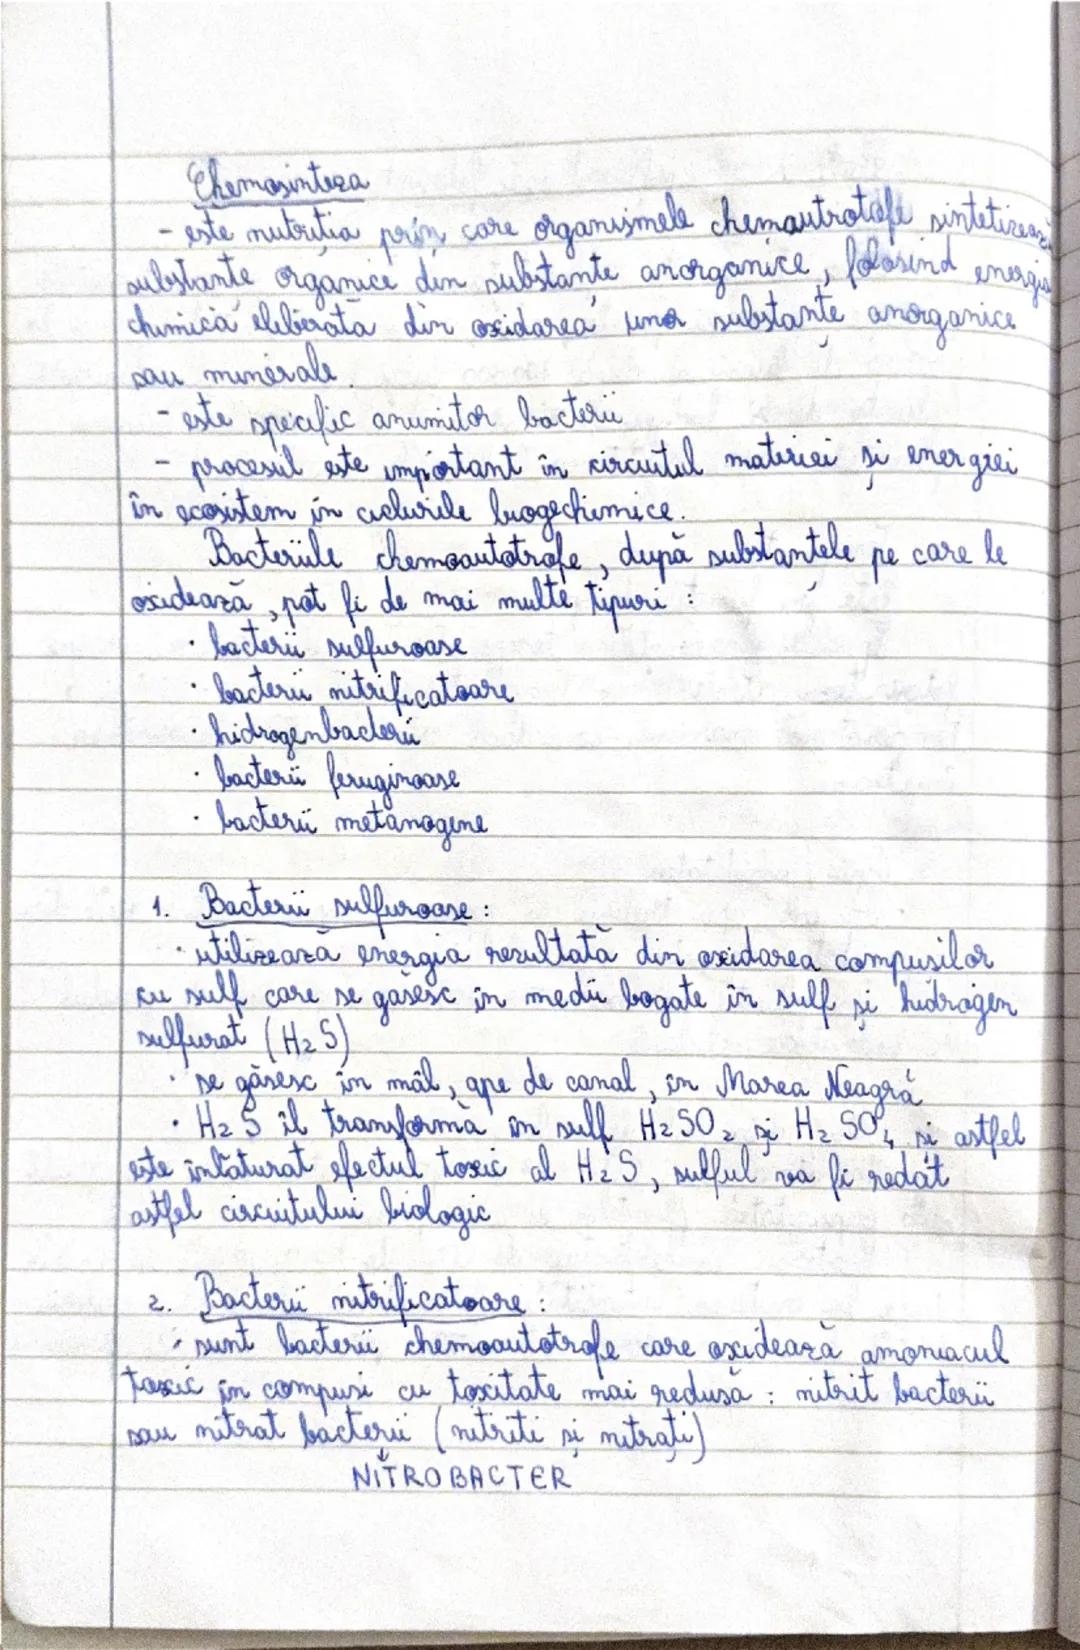 Chemosinteza
- este nutriția prin care organismele chemautrotofe sintetizează
substanțe organice din substanțe anorganice, folosind energia
chimică eliberată din oxidarea unor substanțe anorganice
sau minerale.
- este specific anumitor bacterii
- procesul este important în circuitul materiei și energiei
în ecosistem în ciclurile biogechimice.
Bacteriile chemoautotrofe, după substanțele pe care le
oxidează, pot fi de mai multe tipuri :
· bacterii sulfuroase
· bacterii nitrificatoare
· hidrogenbacterii
· bacterii feruginoase
· bacterii metanogene
1. Bacterii sulfuroase :
· utilizează energia rezultată din oxidarea compusilor
cu sulf care se găsesc în medii bogate în sulf și hidrogen
sulfurat (H2S)
· se găsesc în mâl, ape de canal, în Marea Neagră
· H2S îl transformă în sulf H2SO2 și H2SO4 și astfel
este înlăturat efectul toxic al H2S, sulful va fi redat
astfel circuitului biologic
2. Bacterii nitrificatoare :
· sunt bacterii chemoautotrofe care oxidează amoniacul
toxic în compuși cu toxitate mai redusă : nitrit bacterii
sau nitrat bacterii (nitriți și nitrați)
NITROBACTER